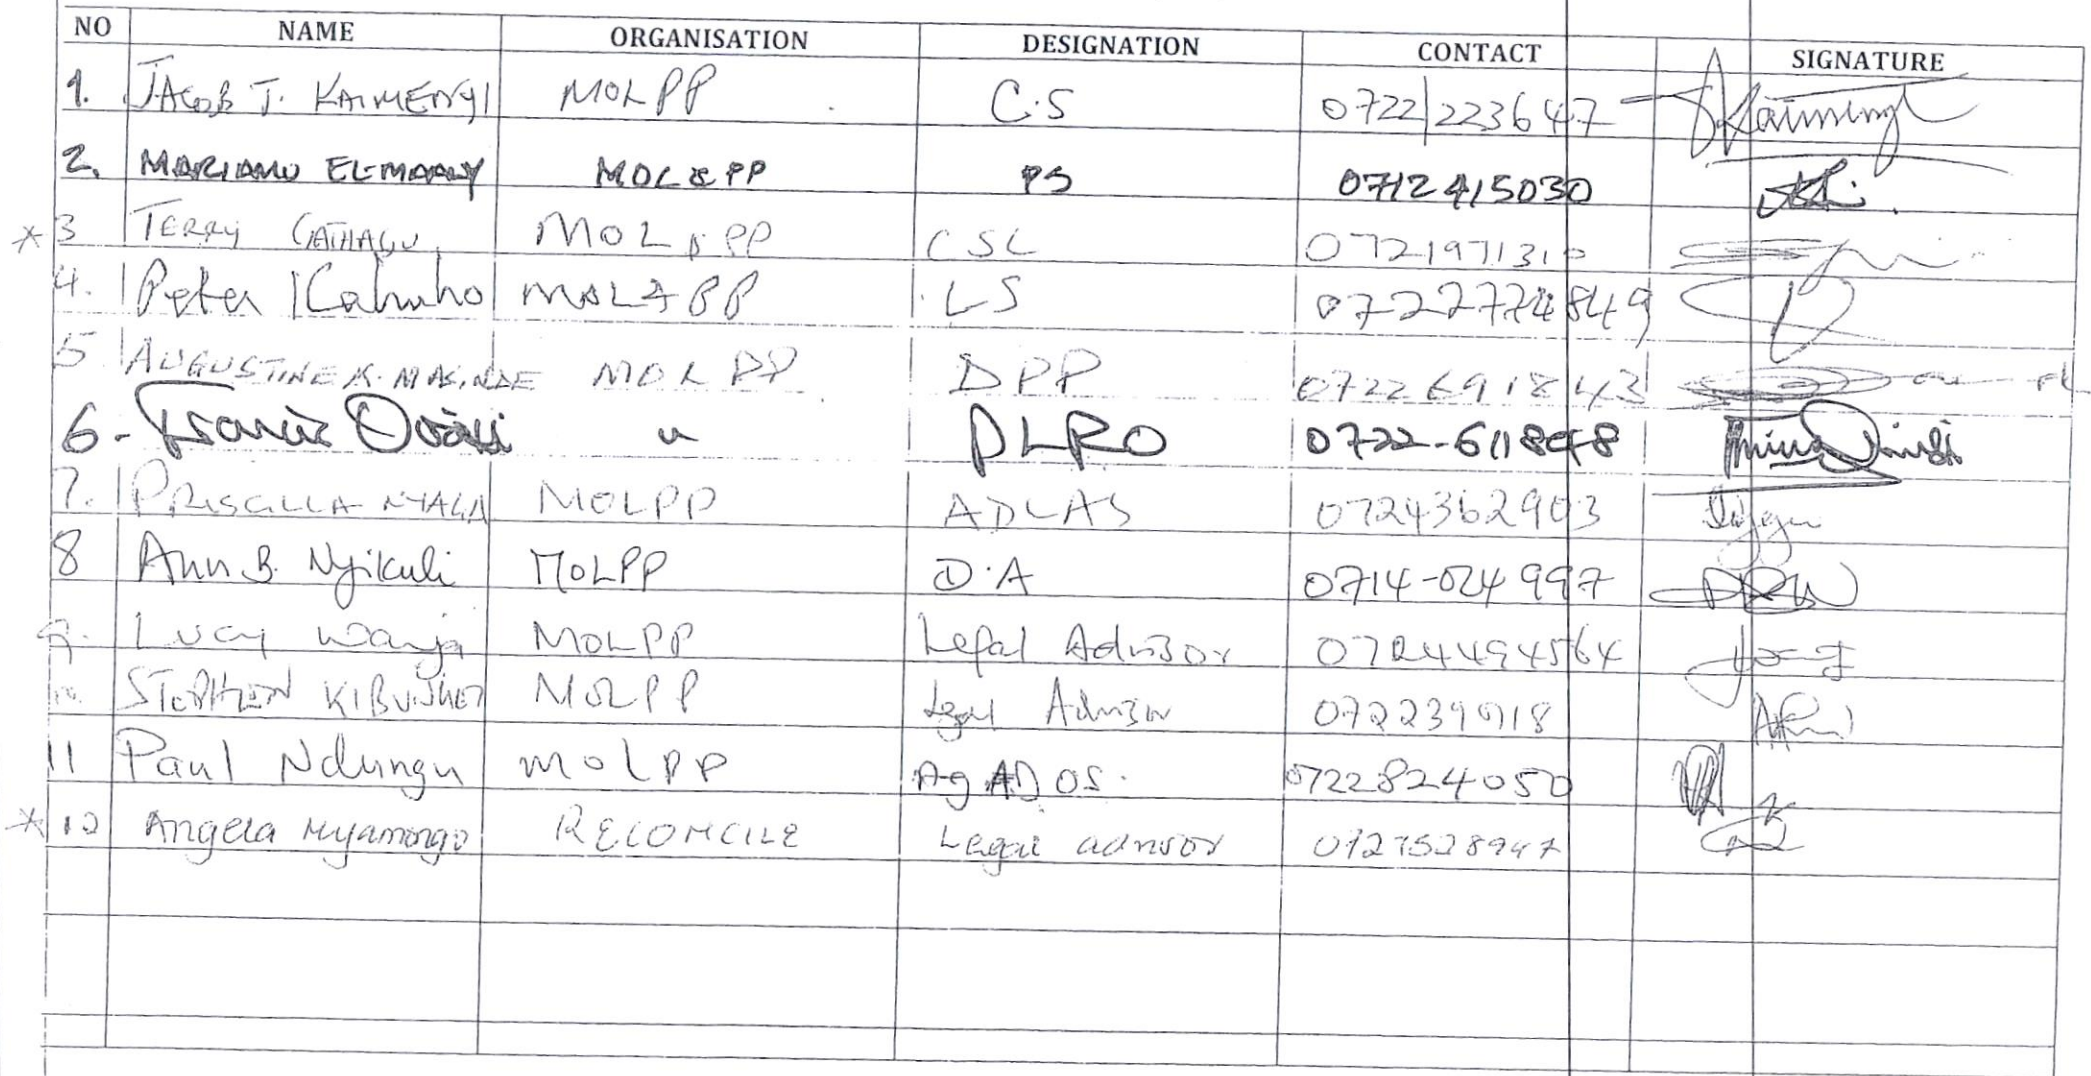 NO NAME ORGANISATION DESIGNATION CONTACT SIGNATURE
1. JACOB T. KAIMENYI MOLPP C.S 0722/223647
2. MARIAMU EL-MAAWY MOL&PP PS 0712415030
* 3 TERRY GATHAGU MOL&PP CSL 0721971310
4. Peter Kahuho MOL&PP LS
5 AUGUSTINE K. MASINDE MOLPP DPP 0722691843
6- " DLRO
7. PRISCILLA NYAGA MOLPP ADLAS 0724362903
8 Ann B. Nyikuli MOLPP D.A 0714-024997
9. Lucy Wanja MOLPP Legal Advisor 0724494564
STEPHEN MOLPP Legal Advisor
11 Paul Ndungu MOLPP Ag ADOS. 0722824050
* 12 Angela Nyamongo RECONCILE Legal advisor